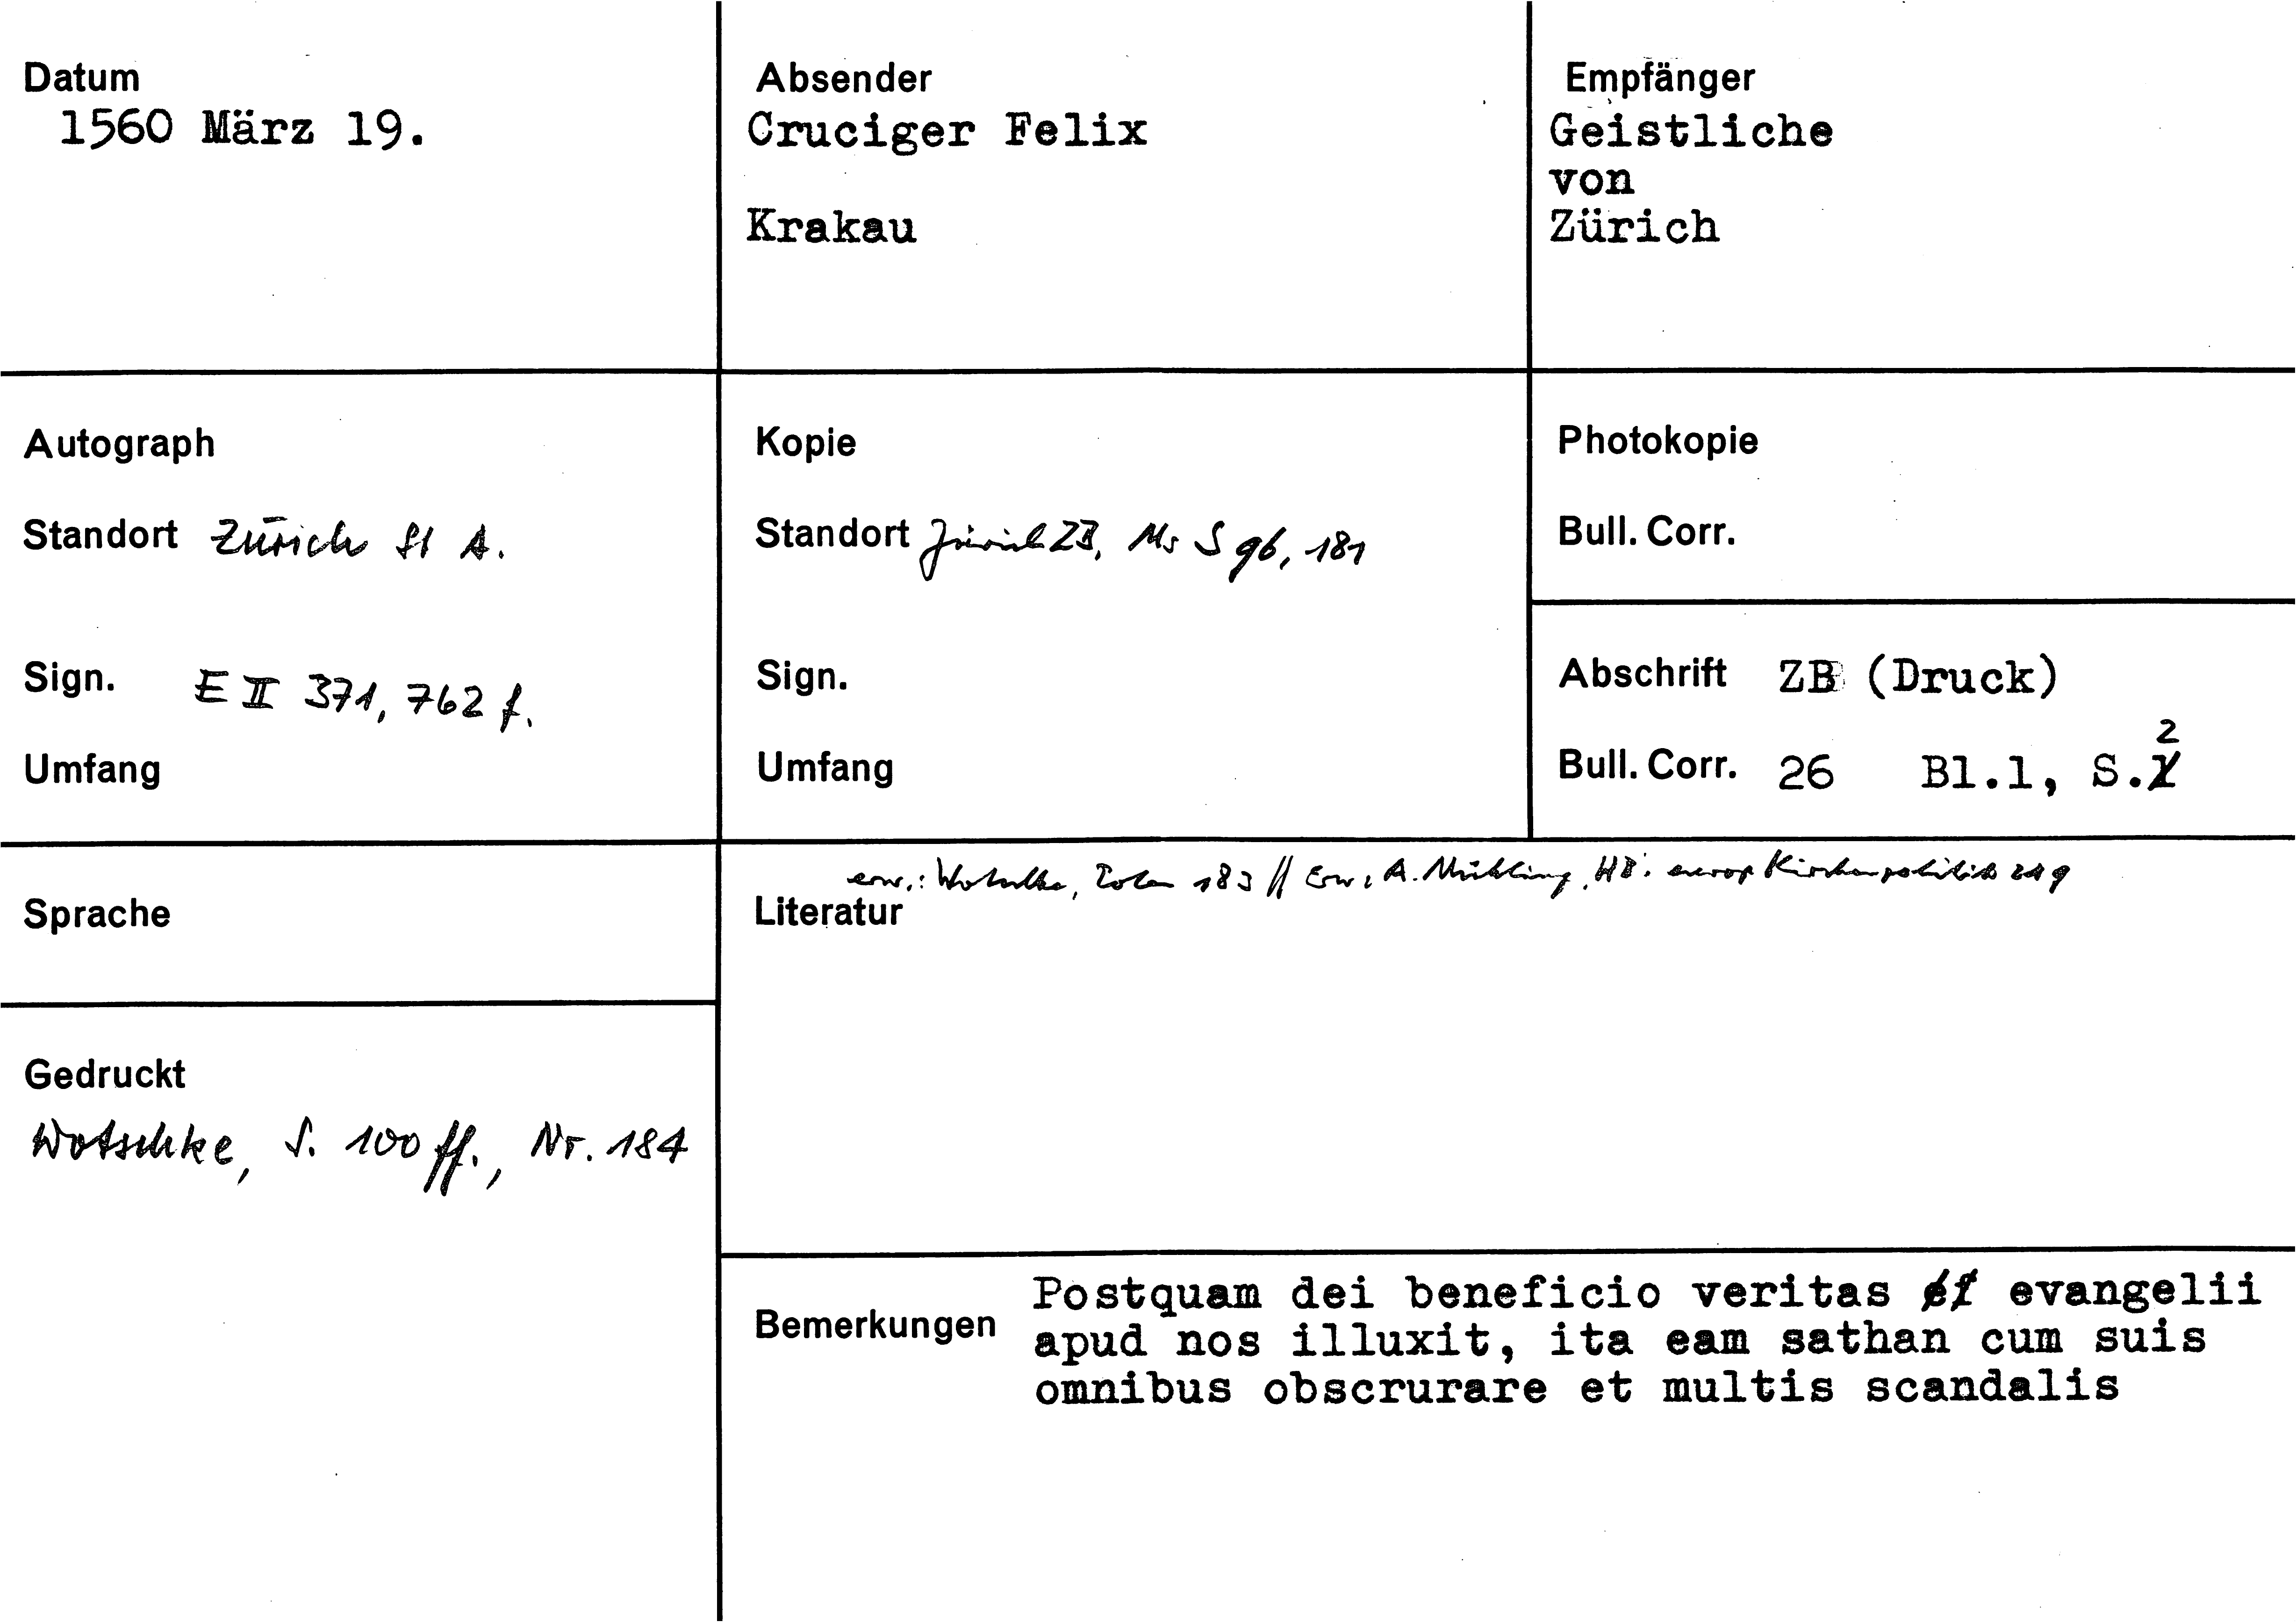 Datum
1560 März 19.
Absender
Cruciger Felix
Krakau
Empfänger
Geistliche
von
Zürich
Autograph
Standort Zürich St A.
Sign. E II 371, 762 f.
Umfang
Kopie
Standort Zürich ZB, Ms S 96, 181
Sign.
Umfang
Photokopie
Bull. Corr.
Abschrift ZB (Druck)
Bull. Corr. 26 Bl.1, S. 2
Sprache
Gedruckt
Wotschke, S. 100 ff., Nr. 184
erw.: Wotschke, Polen 183 // Erw: A. Mühling, HB: europ Kirchenpolitik 219
Literatur
Bemerkungen
Postquam dei beneficio veritas evangelii
apud nos illuxit, ita eam sathan cum suis
omnibus obscrurare et multis scandalis